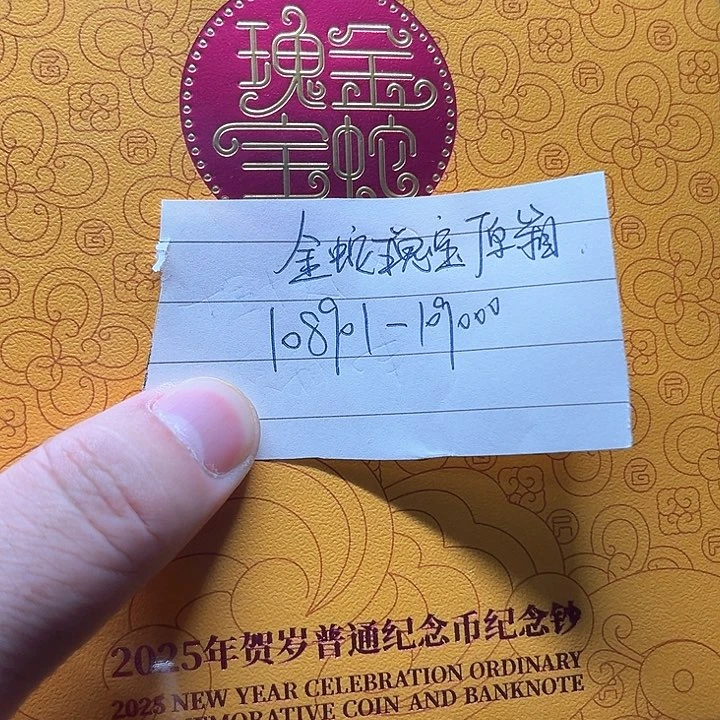 瑰金
宝蛇
金蛇瑰宝原箱
108901-109000
2025年贺岁普通纪念币纪念钞
2025 NEW YEAR CELEBRATION ORDINARY
COIN AND BANKNOTE